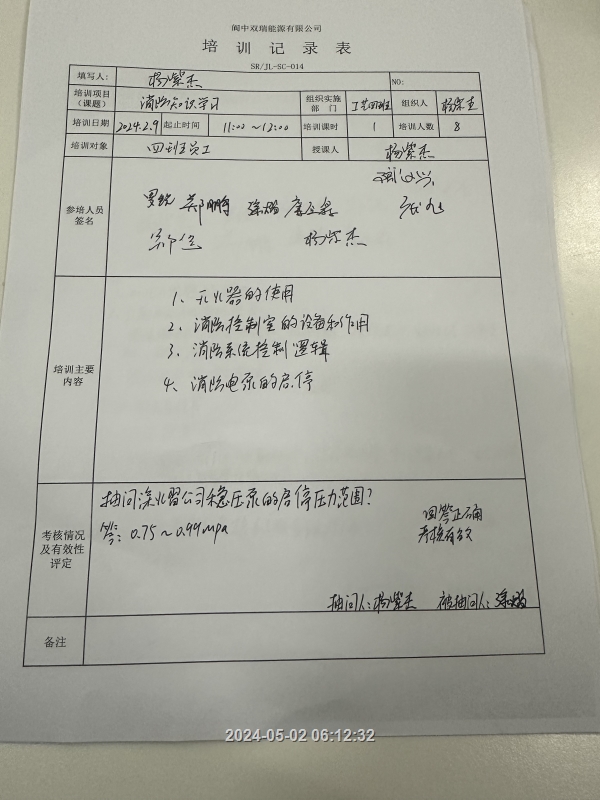 阆中双瑞能源有限公司
培训记录表
SR/JL-SC-014
填写人: 杨紫杰 NO:
培训项目(课题) 消防知识学习 组织实施部门 工艺四班 组织人 杨紫杰
培训日期 2024.2.9 起止时间 11:00~12:00 培训课时 1 培训人数 8
培训对象 四班员工 授课人 杨紫杰
参培人员签名
郑鹏 徐鹏
杨紫杰
培训主要内容
1、灭火器的使用
2、消防控制室的设备和作用
3、消防系统控制逻辑
4、消防电泵的启停
考核情况及有效性评定
抽问 公司稳压泵的启停压力范围?
答: 0.75~0.99mpa
回答正确
考核有效
抽问人: 杨紫杰 被抽问人: 徐鹏
备注
2024-05-02 06:12:32